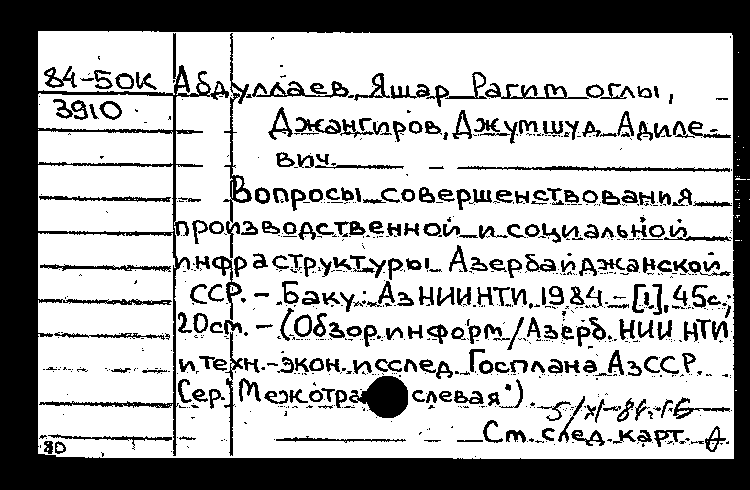 84-50К Абдуллаев, Яшар Рагим оглы,
3910 Джангиров, Джумшуд Адиле-
вич.
Вопросы совершенствования
производственной и социальной
инфраструктуры Азербайджанской
ССР. - Баку: АзНИИНТИ, 1984. - [1], 45с.;
20см. - (Обзор. информ / Азерб. НИИ НТИ
и техн.-экон. исслед. Госплана АзССР.
Сер. "Межотра слевая").
См. след. карт.
80